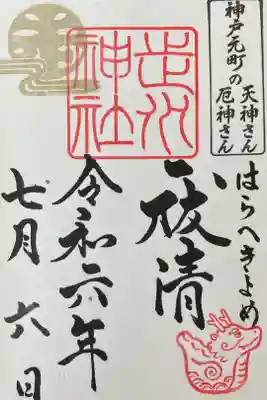 神戸元町の
天神さん
厄神さん
はらへきよめ
祓清
神社
令和六年
七月六日